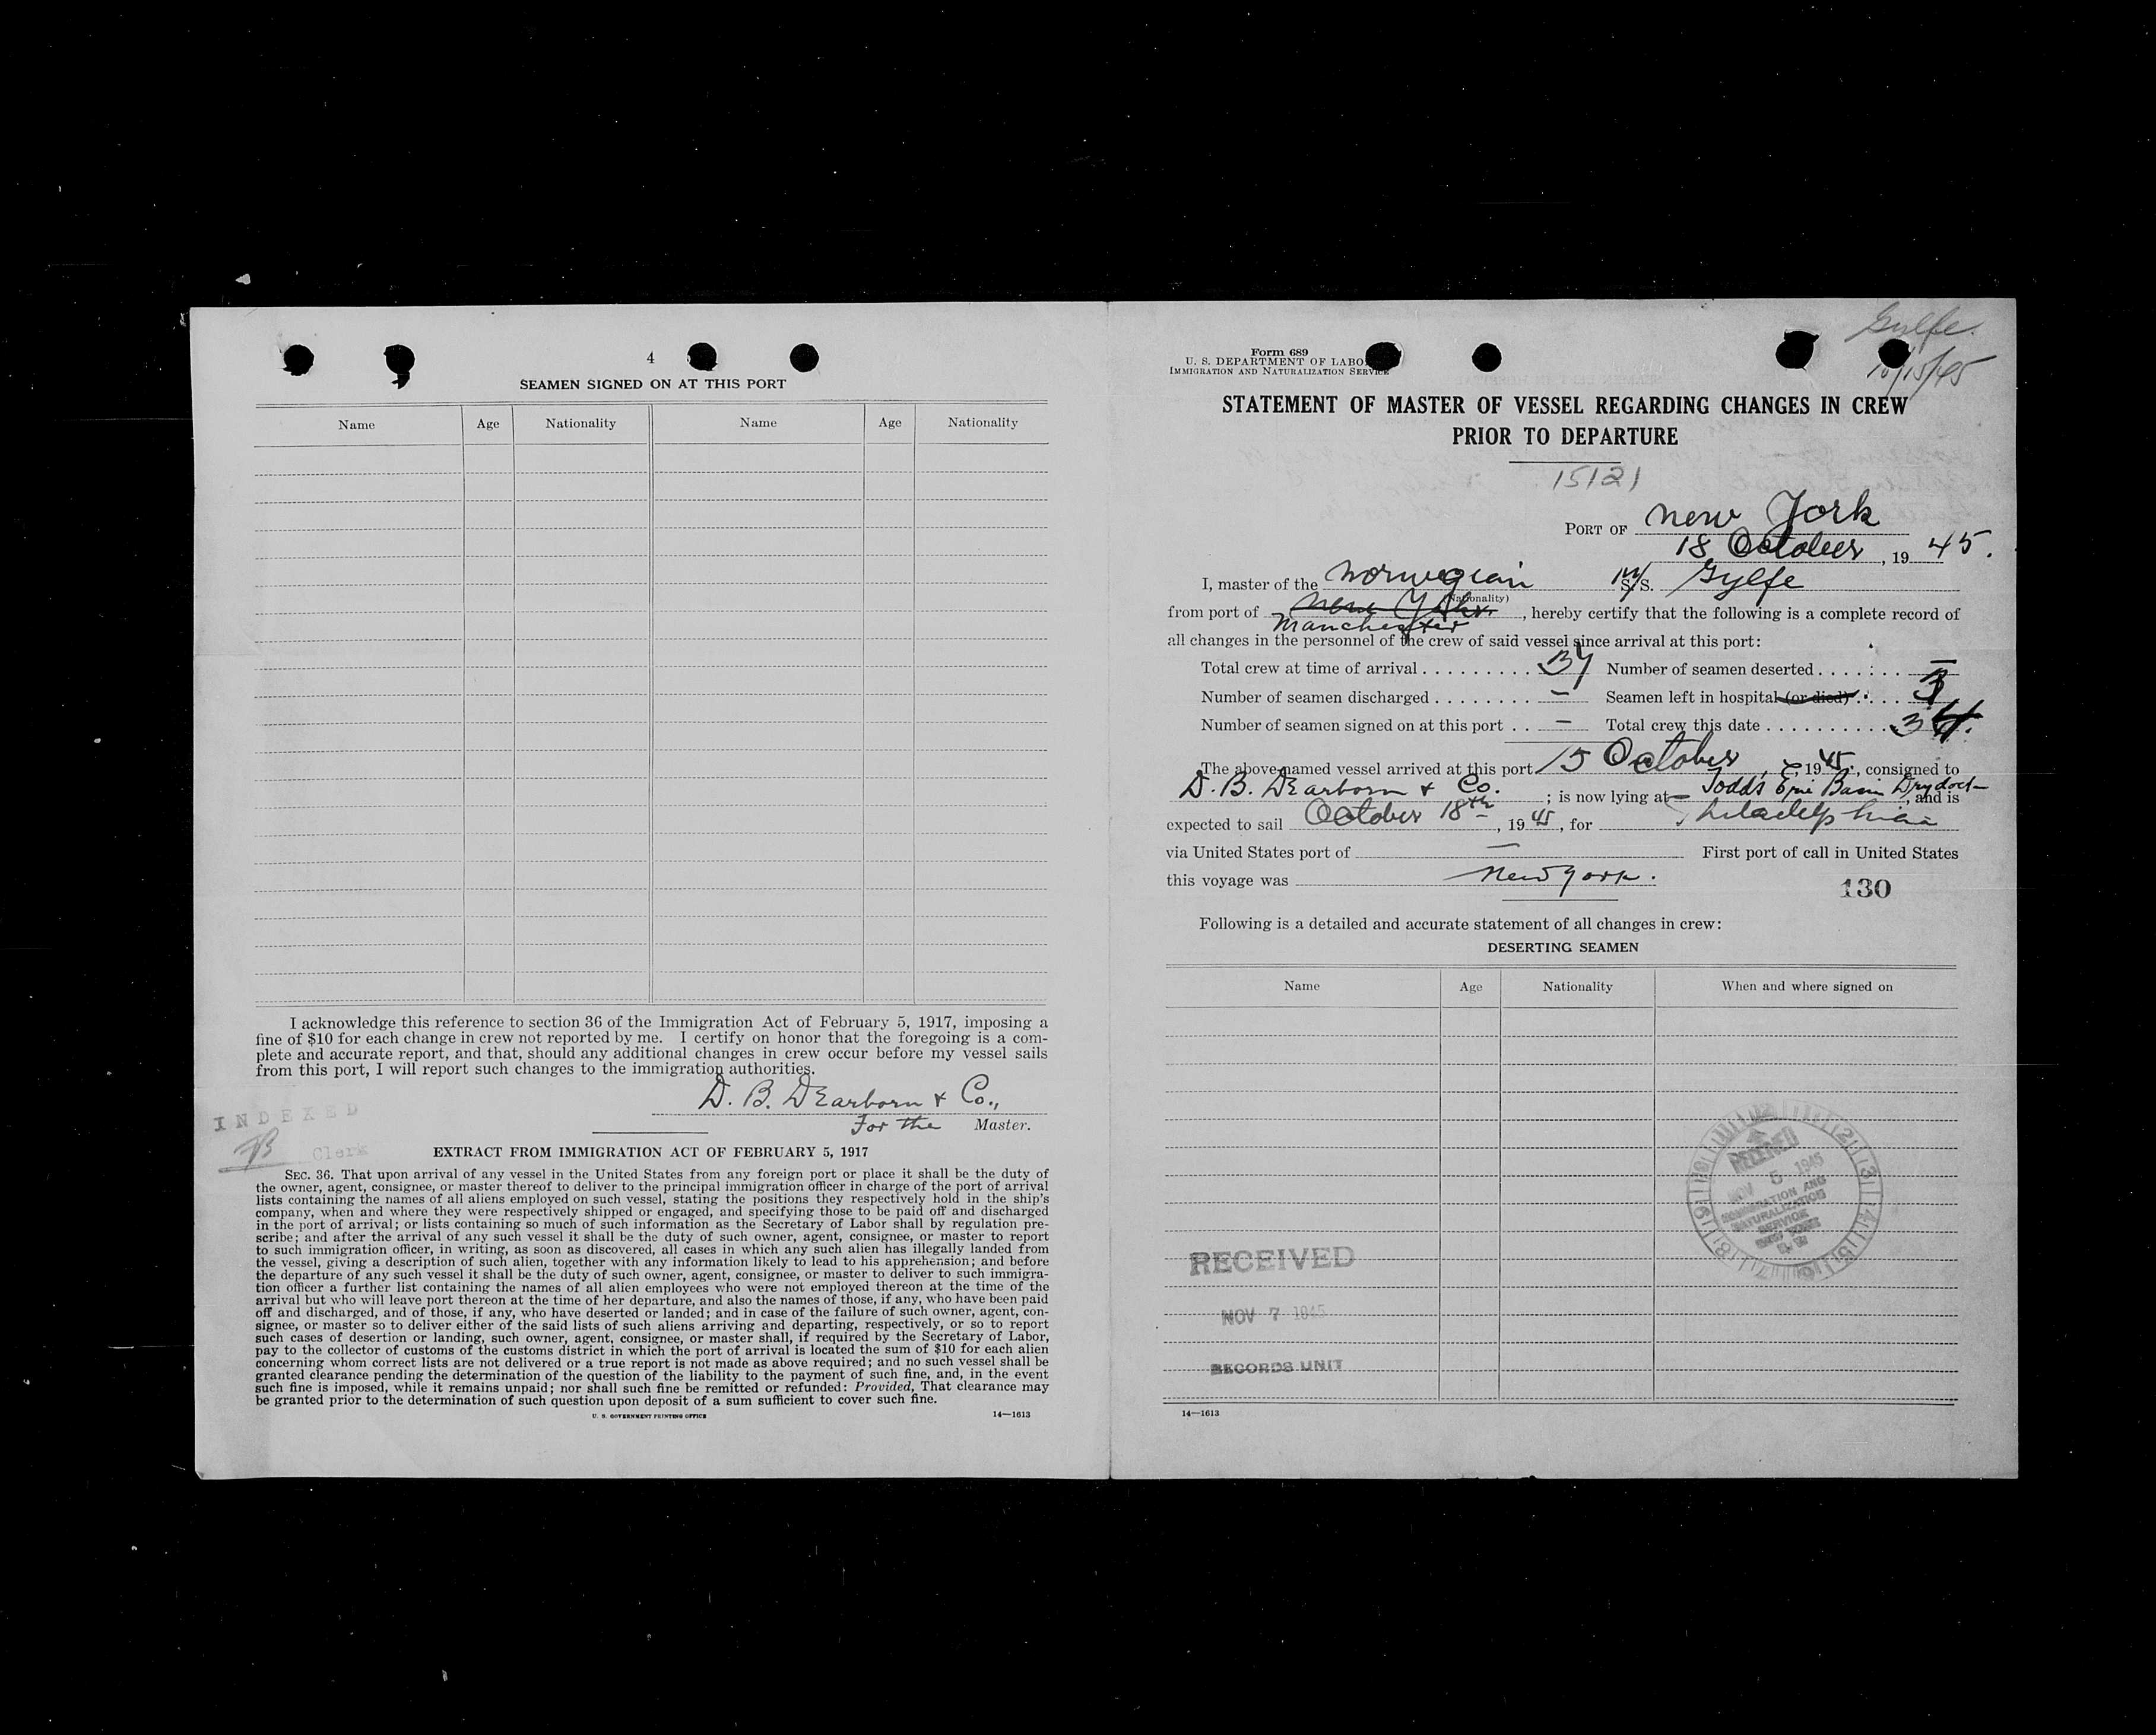 4
SEAMEN SIGNED ON AT THIS PORT
Name Age Nationality Name Age Nationality
I acknowledge this reference to section 36 of the Immigration Act of February 5, 1917, imposing a
fine of $10 for each change in crew not reported by me. I certify on honor that the foregoing is a com-
plete and accurate report, and that, should any additional changes in crew occur before my vessel sails
from this port, I will report such changes to the immigration authorities.
D. B. Dearborn & Co.,
For the Master.
INDEXED
Clerk
EXTRACT FROM IMMIGRATION ACT OF FEBRUARY 5, 1917
SEC. 36. That upon arrival of any vessel in the United States from any foreign port or place it shall be the duty of
the owner, agent, consignee, or master thereof to deliver to the principal immigration officer in charge of the port of arrival
lists containing the names of all aliens employed on such vessel, stating the positions they respectively hold in the ship's
company, when and where they were respectively shipped or engaged, and specifying those to be paid off and discharged
in the port of arrival; or lists containing so much of such information as the Secretary of Labor shall by regulation pre-
scribe; and after the arrival of any such vessel it shall be the duty of such owner, agent, consignee, or master to report
to such immigration officer, in writing, as soon as discovered, all cases in which any such alien has illegally landed from
the vessel, giving a description of such alien, together with any information likely to lead to his apprehension; and before
the departure of any such vessel it shall be the duty of such owner, agent, consignee, or master to deliver to such immigra-
tion officer a further list containing the names of all alien employees who were not employed thereon at the time of the
arrival but who will leave port thereon at the time of her departure, and also the names of those, if any, who have been paid
off and discharged, and of those, if any, who have deserted or landed; and in case of the failure of such owner, agent, con-
signee, or master so to deliver either of the said lists of such aliens arriving and departing, respectively, or so to report
such cases of desertion or landing, such owner, agent, consignee, or master shall, if required by the Secretary of Labor,
pay to the collector of customs of the customs district in which the port of arrival is located the sum of $10 for each alien
concerning whom correct lists are not delivered or a true report is not made as above required; and no such vessel shall be
granted clearance pending the determination of the question of the liability to the payment of such fine, and, in the event
such fine is imposed, while it remains unpaid; nor shall such fine be remitted or refunded: Provided, That clearance may
be granted prior to the determination of such question upon deposit of a sum sufficient to cover such fine.
U. S. GOVERNMENT PRINTING OFFICE 14—1613
Gylfe.
10/15/45
Form 689
U. S. DEPARTMENT OF LABO
IMMIGRATION AND NATURALIZATION SERVICE
STATEMENT OF MASTER OF VESSEL REGARDING CHANGES IN CREW
PRIOR TO DEPARTURE
15121
PORT OF New York
18 October, 1945.
I, master of the Norwegian M/S. Gylfe
(Nationality)
from port of New York, hereby certify that the following is a complete record of
Manchester
all changes in the personnel of the crew of said vessel since arrival at this port:
Total crew at time of arrival . . . . . . . . . 37 Number of seamen deserted . . . . : . . . —
Number of seamen discharged . . . . . . . . — Seamen left in hospital (or died) . . . . . 3
Number of seamen signed on at this port . . — Total crew this date . . . . . . . . . . 34.
The above-named vessel arrived at this port 15 October, 1945, consigned to
D. B. Dearborn & Co. ; is now lying at Todds Erie Basin Drydock, and is
expected to sail October 18th, 1945, for Philadelphia
via United States port of — First port of call in United States
this voyage was New York.
130
Following is a detailed and accurate statement of all changes in crew:
DESERTING SEAMEN
Name Age Nationality When and where signed on
RECEIVED
NOV 5 1945
IMMIGRATION AND
NATURALIZATION
SERVICE
RECEIVED
NOV 7 1945
RECORDS UNIT
14—1613